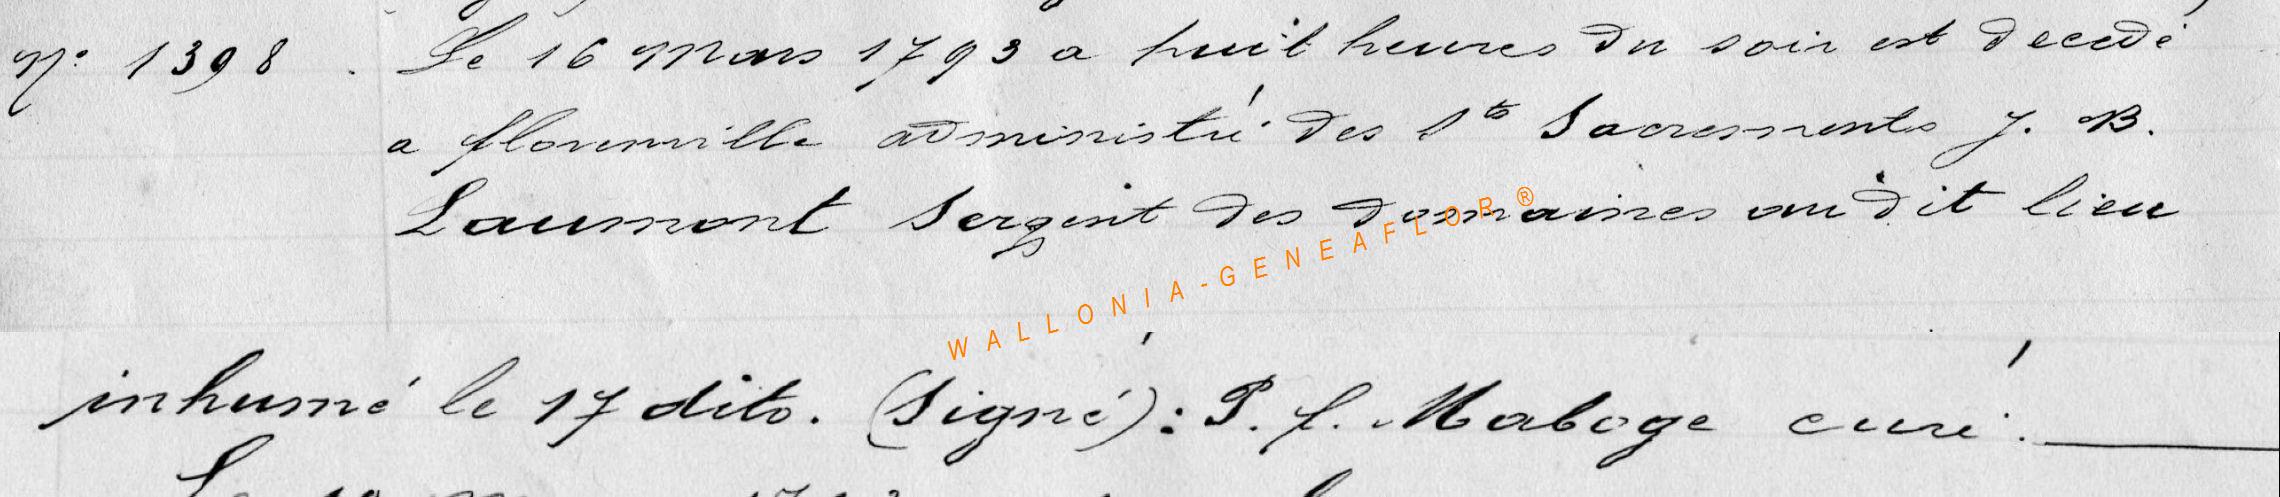 N° 1398. Le 16 Mars 1793 a huit heures du soir est decedé
a florenville administré des Sts Sacrements J. B.
Laumont Sergent des domaines audit lieu
WALLONIA-GENEAFLOR®
inhumé le 17 dito. (Signé): P. f. Maboge curé.